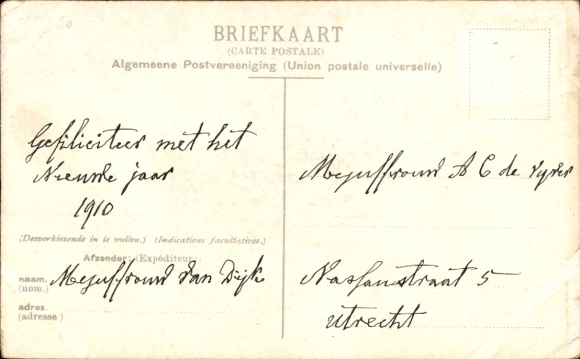 BRIEFKAART
(CARTE POSTALE)
Algemeene Postvereeniging (Union postale universelle)
Gefiliciteer met het
Nieuwe jaar
1910
(Desverkiezende in te vullen.) (Indications facultatives.)
Afzender: (Expéditeur:
naam. Mejuffrouw Van Dijk
(nom.)
adres.
(adresse)
Mejuffrouw A C de
Nassaustraat 5
Utrecht